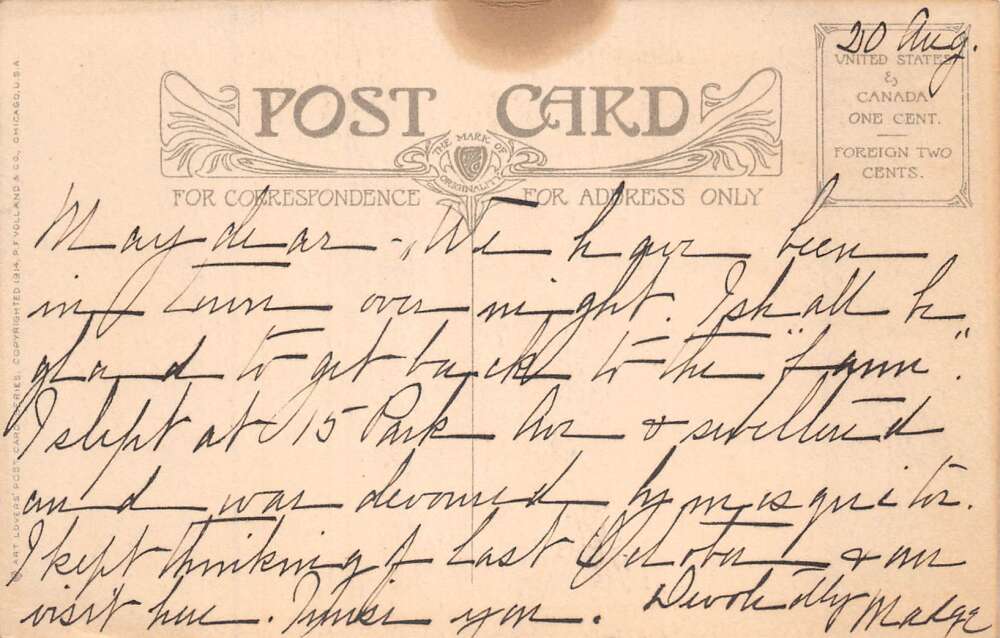 20 Aug.
UNITED STATES
&
CANADA
ONE CENT.
FOREIGN TWO
CENTS.
POST CARD
THE MARK OF
ORIGINALITY
FOR CORRESPONDENCE FOR ADDRESS ONLY
May dear - We have been
in town over night. I shall be
glad to get back to the "farm".
I slept at 15 Park Ave & sweltered
and was devoured by mosquitos.
I kept thinking of last October & our
visit here. Miss you. Devotedly Madge
ART LOVERS' POST CARD SERIES, COPYRIGHTED 1914, P.F. VOLLAND & CO., CHICAGO, U.S.A.